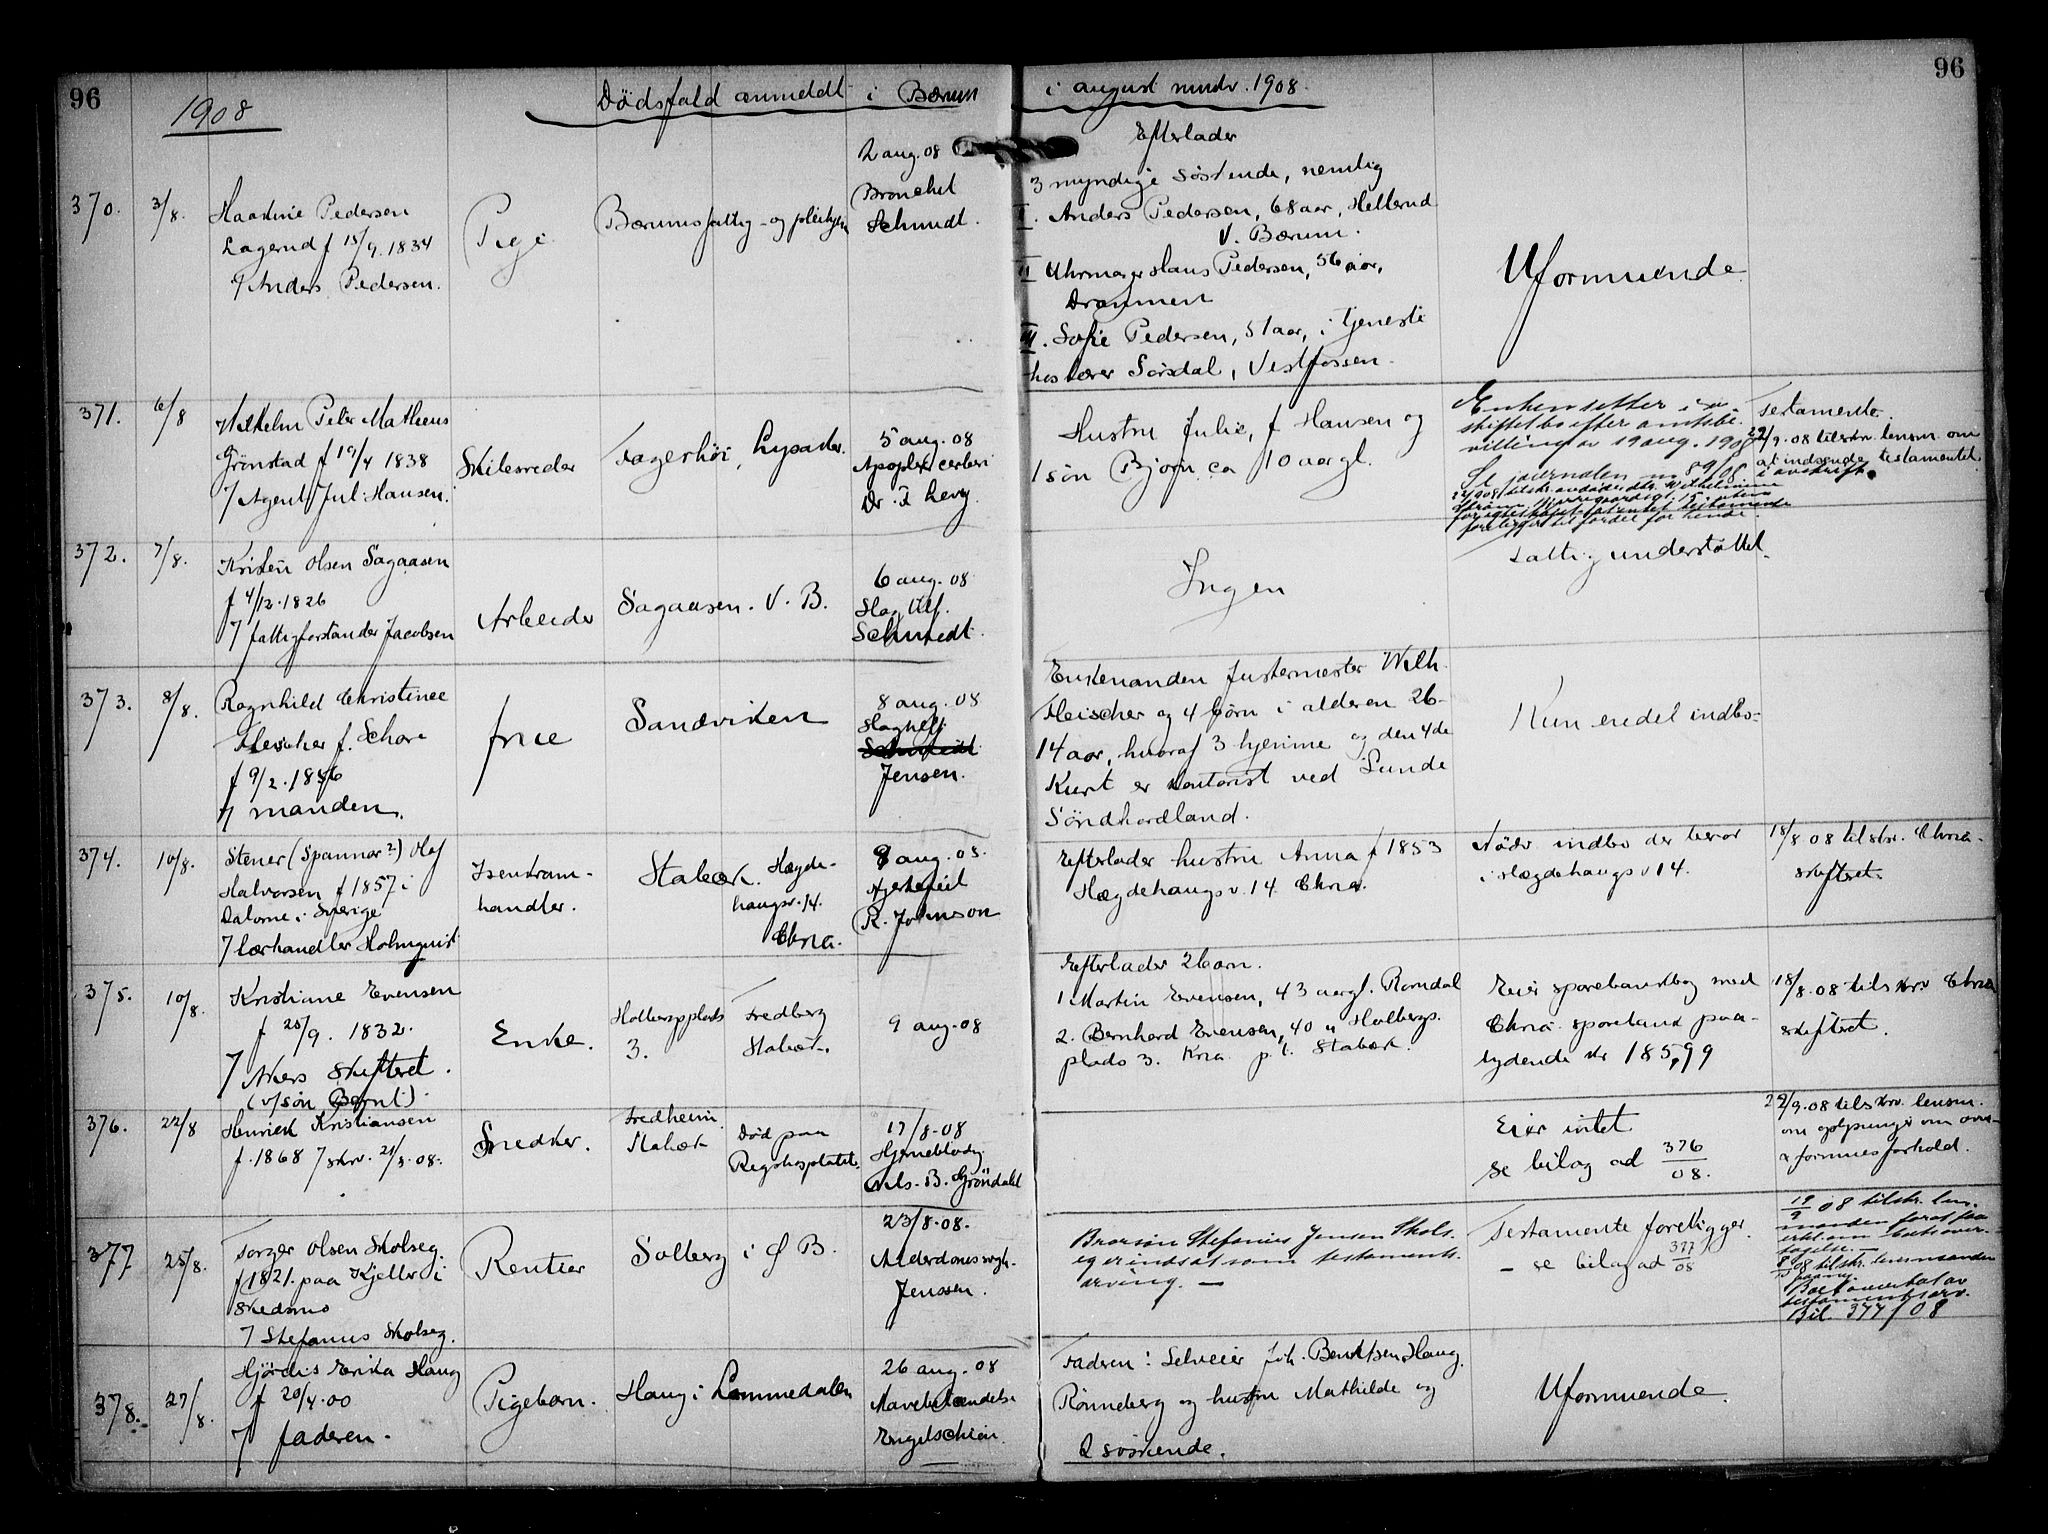 96
1908
Dödsfald anmeldt i Bærum
i august mndr. 1908.
96
Efterlader
370.
3/8.
Pedersen
Lagerud f 15/9. 1834
7 Anders Pedersen.
Pige
Bærums fattig- og pleiehjem
2 aug. 08
Bronchit
Schmidt.
3 myndige söskende, nemlig
I. Anders Pedersen, 68 aar, Hellerud
V. Bærum.
II Uhrmager Hans Pedersen, 56 aar,
Drammen
III. Sofie Pedersen, 51 aar, i tjeneste
hos Lærer Sörsdal, Vestfossen.
Uformuende.
371.
6/8
Vilhelm Peter Matheus
Grönstad f 19/4 1838
7 Agent Jul. Hansen.
Skibsreder
Fagerhöi, Lysaker.
5 aug. 08
Apoplex cerebri
Dr. I Levy.
Hustru Julie, f Hansen og
1 sön Björn ca 10 aar gl.
Enken sitter i
skiftebo efter amtsbe-
villing av 19 aug. 1908
Se journalen nr 89/08
foreligger til fordel for hende.
Testamente.
22/9. 08 tilskr. lensm. om
at indsende testamentet
i avskrift.
372.
7/8.
Kristen Olsen Sagaasen
f 4/12. 1826
7 fattigforstander Jacobsen
Arbeider
Sagaasen. V. B.
6 aug. 08
Slagtilf.
Schmidt.
Ingen
Fattigunderstöttet.
373.
8/8.
Ragnhild Christinee
Fleischer f.
f 9/2. 1856
7 manden.
frue
Sandviken
8 aug. 08
Slagtilf.
Jensen.
Enkemanden Justermester Wilh.
Fleischer og 4 börn i alderen 26-
14 aar, hvoraf 3 hjemme og den 4de
Kurt er kontorist ved Lunde
Söndhordland.
Kun endel indbo-
374.
10/8.
Stener (Spannar?) Olaf
Halvorsen f 1857 i
Dalorne i Sverige
7 lærhandler Holmqvist
Isenkram-
handler.
Stabæk.
Hægde-
haugsv. 14.
Chria.
9 aug. 08.
Hjertefeil
R. Johnson
Efterlader hustru Anna f 1853
Hægdehaugsv. 14 Chria.
Nödv. indbo der beror
i Hægdehaugsv 14.
18/8 08 tilskr. Chria-
skifteret.
375.
10/8.
Kristiane Evensen
f 28/9. 1832.
7 Akers skifteret.
(v/sön Bernt).
Enke.
Holbergsplads
3.
Fredberg
Stabæk.
9 aug. 08
Efterlader 2 barn.
1 Martin Evensen, 43 aar gl. Romdal
2. Bernhard Evensen, 40 " Holbergs.
plads 3. Kria p. t. Stabæk.
Eier sparebankbog med
Chria. sparebank paa-
lydende kr 185,99
18/8. 08 tilskrv Chria
skifteret.
376.
22/8
Henrick Kristiansen
f. 1868 7 skrv. 21/8. 08.
Snedker.
Fredheim
Stabæk
Död paa
Rigshospitalet.
17/8-08
Hjerneblödn.
Nils. B. Gröndahl
Eier intet
se bilag ad 376/08.
22/9. 08 tilskrv. lensm.
om oplysninger om
formuesforhold.
377
25/8.
Torger Olsen Skolseg.
f 1821. paa Kjeller i
Skedsmo
7 Stefanus Skolseg.
Rentier
Solberg i Ö B.
23/8. 08.
Alderdomssvagh.
Jenssen.
Brorsön Stefanus Jensen Skols-
eg er indsat som testaments-
arving. —
Testamente foreligger.
– se bilag ad 377/08
19/9 08 tilskr. len.
Bil. 377/08
378.
27/8.
Hjördis Erika Haug
f 20/4. 00
7 faderen.
Pigebarn.
Haug i Lommedalen
26 aug. 08
Mavebetændelse
Engelschiön.
Faderen: Selveier Joh. Berntsen Haug.
Rönneberg og hustru Mathilde og
2 söskende.
Uformuende.